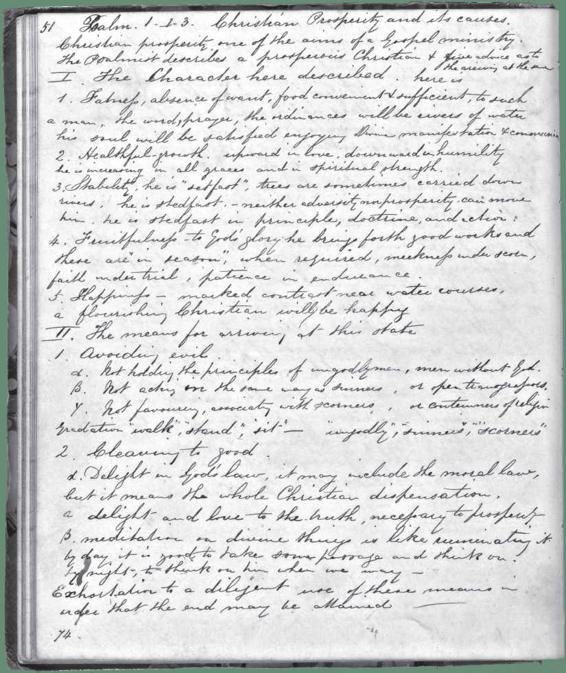 51 Psalm. 1-1-3. Christian Prosperity and its causes.
Christian prosperity, one of the aims of a Gospel ministry.
The Psalmist describes a prosperous Christian & give advice as to
the arriving at the same
I. The Character here described. here is
1. Fatness, absence of want, food convenient & sufficient, to such
a man, the word, prayer, the ordinances will be rivers of water
his soul will be satisfied enjoying Divine manifestation &
2. Healthful growth. upward in love, downward in humility
he is increasing in all graces and in spiritual strength.
3. Stability, he is "stedfast", trees are sometimes carried down
rivers, he is stedfast, - neither adversity nor prosperity can move
him he is stedfast in principle, doctrine, and action:
4. Fruitfulness - to God's glory he brings forth good works and
these are "in season", when required, meekness under scorn,
faith under trial, patience in endurance.
5. Happiness - marked contrast near water courses,
a flourishing Christian will be happy
II. The means for arriving at this state
1. Avoiding evil
α. Not holding the principles of ungodly men, men without God.
β. Not acting in the same way as sinners, or open transgressors.
γ. Not favouring, associating with scorners, or contemners of religion
Gradation "walk", "stand", "sit" - "ungodly", "sinners", "scorners"
2. Cleaving to good.
α. Delight in God's law, it may include the moral law,
but it means the whole Christian dispensation.
a delight and love to the truth, necessary to prosperity
β. meditation on divine things is like ruminating it
by day it is good to take some passage and think on.
by night, to think on him when we may -
Exhortation to a diligent use of these means in
order that the end may be attained
74.